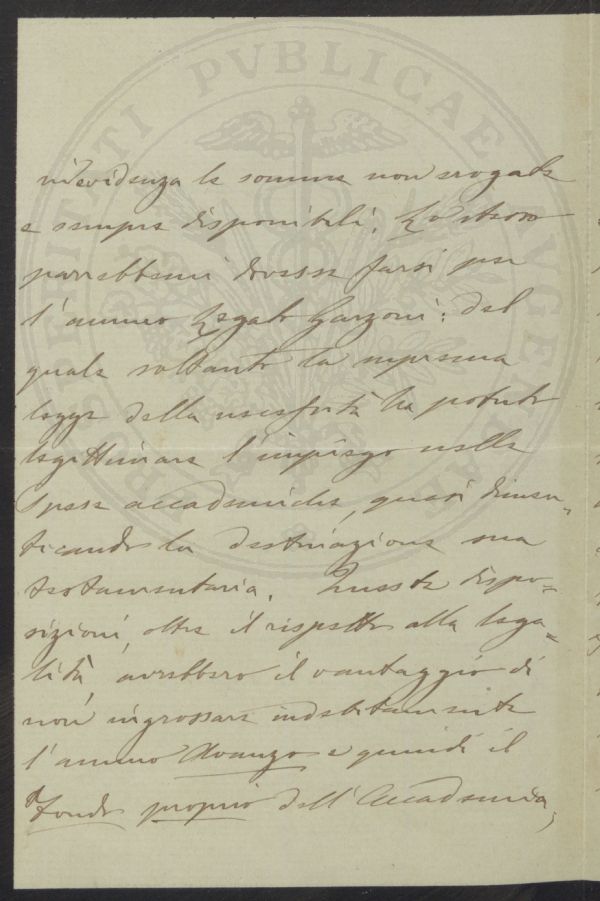 PROSPERITATI PVBLICAE AVGENDAE
in evidenza le somme non erogate
e sempre disponibili. Lo stesso
parrebbemi dovesse farsi per
l'annuo Legato Garzoni: del
quale soltanto la suprema
legge della necessità ha potuto
legittimare l'impiego nelle
spese accademiche, quasi dimen-
ticando la destinazione sua
testamentaria. Queste dispo=
sizioni, oltre il rispetto alla lega=
lità, avrebbero il vantaggio di
non ingrossare indebitamente
l'annuo Avanzo e quindi il
Fondo proprio dell'Accademia,